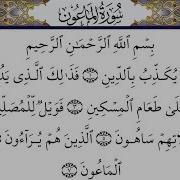 سُورَةُ الْمَاعُونَ
بِسْمِ اللَّهِ الرَّحْمَٰنِ الرَّحِيمِ
يُكَذِّبُ بِالدِّينِ ١ فَذَٰلِكَ الَّذِي يَدُ
لَىٰ طَعَامِ الْمِسْكِينِ ٣ فَوَيْلٌ لِّلْمُصَلِّ
تِهِمْ سَاهُونَ ٥ الَّذِينَ هُمْ يُرَاءُونَ ٦
الْمَاعُونَ ٧